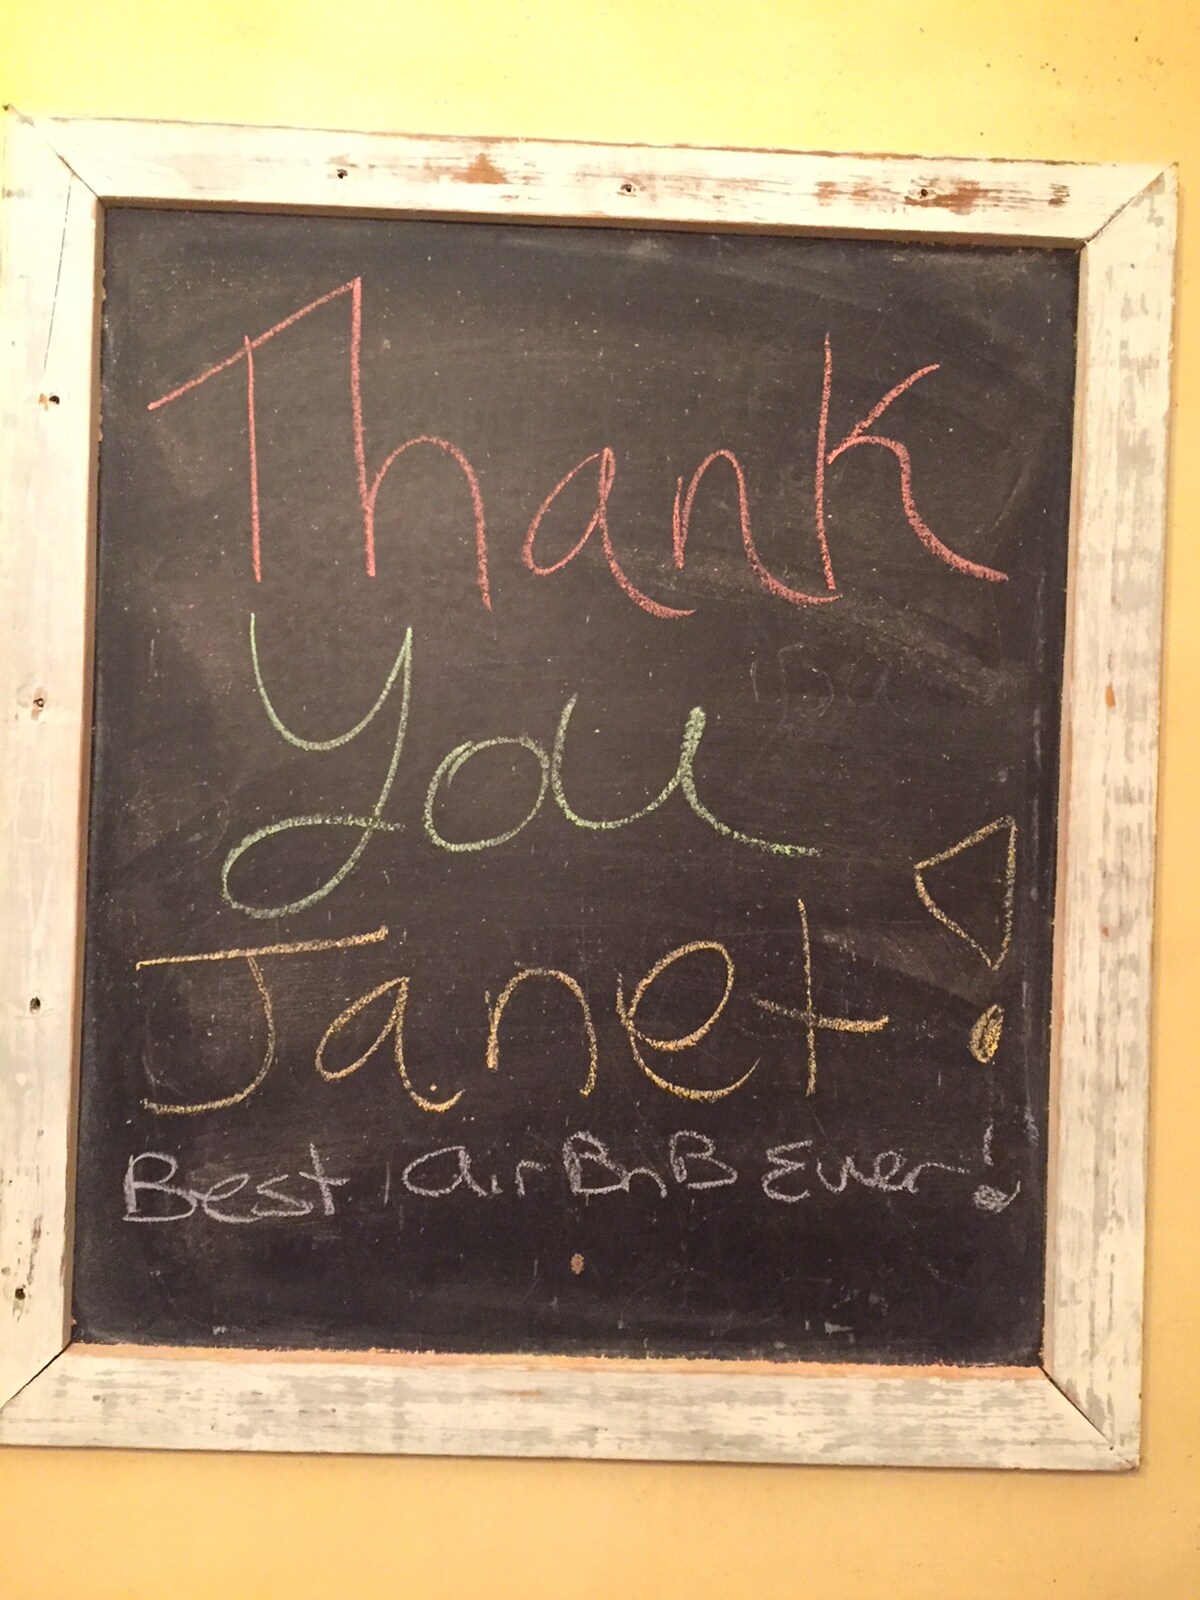 Thank
you
Janet!
Best airBnB Ever!